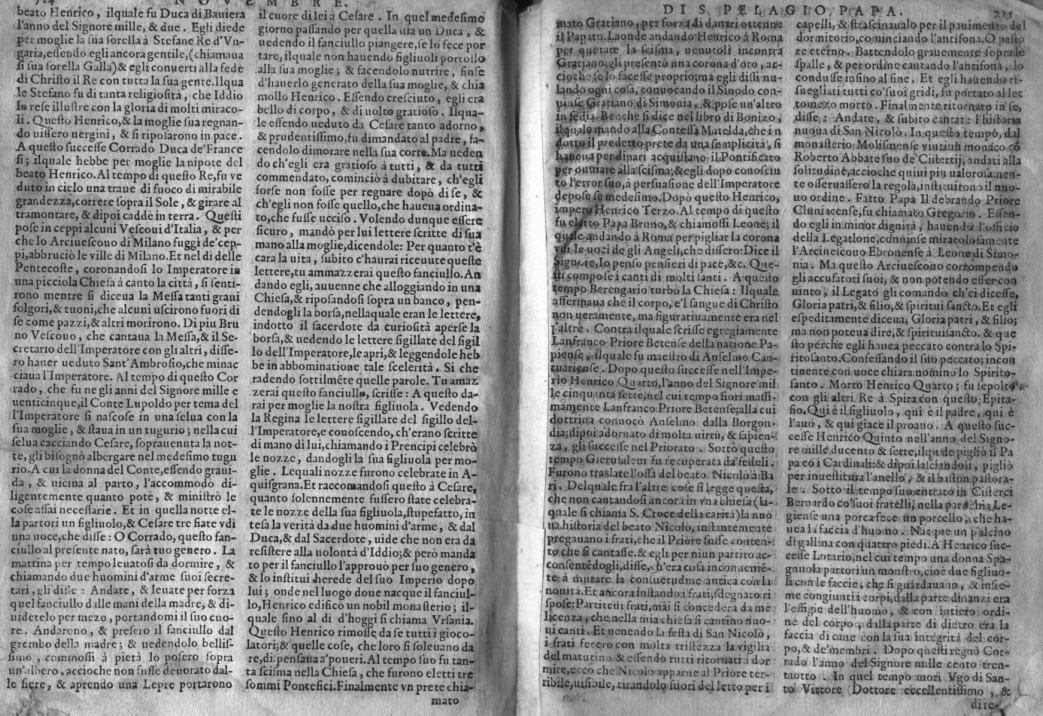 714 NOVEMBRE.
beato Henrico, ilquale fu Duca di Bauiera
l'anno del Signore mille, & due. Egli diede
per moglie la sua sorella à Stefano Re d'Vn-
garia, essendo egli ancora gentile, (chiamaua
si sua sorella Galla) & egli conuertì alla fede
di Christo il Re con tutta la sua gente. Ilqua
le Stefano fu di tanta religiosità, che Iddio
lo rese illustre con la gloria di molti miraco-
li. Questo Henrico, & la moglie sua regnan-
do uissero uergini, & si riposarono in pace.
A questo successe Corrado Duca de' France
si; ilquale hebbe per moglie la nipote del
beato Henrico. Al tempo di questo Re, fu ve
duto in cielo una traue di fuoco di mirabile
grandezza, correre sopra il Sole, & girare al
tramontare, & dipoi cadde in terra. Questi
pose in ceppi alcuni Vescoui d'Italia, & per
che lo Arciuescouo di Milano fuggì de' cep-
pi, abbruciò le ville di Milano. Et nel dì delle
Pentecoste, coronandosi lo Imperatore in
una picciola Chiesa à canto la città, si senti-
rono mentre si diceua la Messa tanti graui
folgori, & tuoni, che alcuni uscirono fuori di
se come pazzi, & altri morirono. Di più Bru
no Vescouo, che cantaua la Messa, & il Se-
cretario dell'Imperatore con gli altri, disse-
ro hauer ueduto Sant'Ambrosio, che minac
ciaua l'Imperatore. Al tempo di questo Cor
rado, che fu ne gli anni del Signore mille e
uenticinque, il Conte Lupoldo per tema del
l'Imperatore si nascose in una selua con la
sua moglie, & staua in un tugurio; nella cui
selua cacciando Cesare, soprauenuta la not-
te, gli bisognò albergare nel medesimo tugu
rio. A cui la donna del Conte, essendo graui-
da, & uicina al parto, l'accommodò di-
ligentemente quanto potè, & ministrò le
cose assai necessarie. Et in quella notte el-
la partorì un figliuolo, & Cesare tre fiate vdì
una uoce, che disse: O Corrado, questo fan-
ciullo al presente nato, sarà tuo genero. La
mattina per tempo leuatosi da dormire, &
chiamando due huomini d'arme suoi secre-
tari, gli disse: Andate, & leuate per forza
quel fanciullo dalle mani della madre, & di-
uidetelo per mezo, portandomi il suo cuo-
re. Andarono, & presero il fanciullo dal
grembo della madre; & uedendolo bellis-
simo, commossi à pietà lo posero sopra
un'albero, accioche non fusse deuorato dal-
le fiere, & aprendo una Lepre portarono
il cuore di lei à Cesare. In quel medesimo
giorno passando per quella uia un Duca, &
uedendo il fanciullo piangere, se lo fece por
tare, ilquale non hauendo figliuoli portollo
alla sua moglie; & facendolo nutrire, finse
d'hauerlo generato della sua moglie, & chia
mollo Henrico. Essendo cresciuto, egli era
bello di corpo, & di uolto gratioso. Ilqua-
le essendo ueduto da Cesare tanto adorno,
& prudentissimo, fu dimandato al padre, fa-
cendolo dimorare nella sua corte. Ma ueden
do ch'egli era gratioso à tutti, & da tutti
commendato, cominciò a dubitare, ch'egli
forse non fosse per regnare dopo di se, &
ch'egli non fosse quello, che haueua ordina-
to, che fusse ucciso. Volendo dunque essere
sicuro, mandò per lui lettere scritte di sua
mano alla moglie, dicendole: Per quanto t'è
cara la uita, subito c'haurai riceuute queste
lettere, tu ammazzerai questo fanciullo. An
dando egli, auuenne che alloggiando in una
Chiesa, & riposandosi sopra un banco, pen-
dendogli la borsa, nellaquale eran le lettere,
indotto il sacerdote da curiosità aperse la
borsa, & uedendo le lettere sigillate del sigil
lo dell'Imperatore, le aprì, & leggendole heb
be in abbominatione tale scelerità. Si che
radendo sottilmẽte quelle parole. Tu amaz
zerai questo fanciullo, scrisse: A questo da-
rai per moglie la nostra figliuola. Vedendo
la Regina le lettere sigillate del sigillo del-
l'Imperatore, e conoscendo, ch'erano scritte
di mano di lui, chiamando i Prencipi celebrò
le nozze, dandogli la sua figliuola per mo-
glie. Lequali nozze furono celebrate in A-
quisgrana. Et raccomandosi questo à Cesare,
quanto solennemente fussero state celebra-
te le nozze della sua figliuola, stupefatto, in
tesa la verità da due huomini d'arme, & dal
Duca, & dal Sacerdote, uide che non era da
resistere alla uolontà d'Iddio; & però manda
to per il fanciullo l'approuò per suo genero,
& lo instituì herede del suo Imperio dopo
lui; onde nel luogo doue nacque il fanciul-
lo, Henrico edificò un nobil monasterio; il-
quale sino al dì d'hoggi si chiama Vrsania.
Questo Henrico rimosse da se tutti i gioco-
latori; & quelle cose, che loro si soleuano da
re, dispensaua a' poueri. Al tempo suo fu tan-
ta scisma nella Chiesa, che furono eletti tre
sommi Pontefici. Finalmente vn prete chia-
mato
DI S. PELAGIO, PAPA. 715
mato Gratiano, per forza di danari ottenne
il Papato. Laonde andando Henrico à Roma
per quetare la scisma, uenutoli incontra
Gratiano; gli presentò una corona d'oro, ac-
cioche se lo facesse proprio; ma egli dissi mu-
lando ogni cosa, conuocando il Sinodo con
uinse Gratiano di Simonia, & pose un'altro
in sedia. Benche si dice nel libro di Bonizo,
ilquale mandò alla Contessa Matelda, che in
dotto il predetto prete da una semplicità, si
haueua per dinari acquistato il Pontificato
per ouuiare alla scisma; & egli dopo conosciu
to l'error suo, à persuasione dell'Imperatore
depose se medesimo. Dopò questo Henrico,
imperò Henrico Terzo. Al tempo di questo
fu eletto Papa Bruno, & chiamossi Leone; il
quale, andando à Roma per pigliar la corona
vdì le uoci de gli Angeli, che dissero: Dice il
Signore, Io penso pensieri di pace, &c. Que-
sti compose i canti di molti santi. A questo
tempo Berengario turbò la Chiesa: Ilquale
affermaua che il corpo, e'l sangue di Christo
non ueramente, ma figuratiuamente era nel
l'altre. Contra ilquale scrisse egregiamente
Lanfranco Priore Betense della natione Pa-
piense, ilquale fu maestro di Anselmo Can-
tuariense. Dopò questo successe nell'Impe-
rio Henrico Quarto, l'anno del Signore mil
le cinquanta sette, nel cui tempo fiorì massi-
mamente Lanfranco Priore Betense; alla cui
dottrina conuocò Anselmo dalla Borgon-
dia; dipoi adornato di molta uirtù, & sapien-
za, gli successe nel Priorato. Sotto questo
tempo Gierusalem fu recuperata da' fedeli.
Furono traslate l'ossa del beato Nicolò à Ba
ri. Delquale fra l'altre cose si legge questa,
che non cantandosi ancora in vna chiesa (la-
quale si chiama S. Croce della carità) la nuo
ua historia del beato Nicolo, instantemente
pregauano i frati, che il Priore fusse conten-
to che si cantasse. & egli per niun partito ac-
consentẽdogli, disse, ch'era cosa inconueniẽ-
te à mutare la consuetudine antica con la
nouità. Et ancora instando i frati, sdegnato ri
spose; Partiteui frati, mai si concederà da me
licenza, che nella mia chiesa si cantino nuo-
ui canti. Et uenendo la festa di San Nicolò,
i frati fecero con molta tristezza la vigilia
del matutino & essendo tutti ritornati à dor
mire, ecco che Nicolò apparue al Priore ter-
ribile, uisibile, tirandolo fuori del letto per i
capelli, & strascinaualo per il pauimento del
dormitorio, cominciando l'antifona. O pasto
re eterno. Battendolo grauemente sopra le
spalle, & per ordine cantando l'antifona, lo
condusse insino al fine. Et egli hauendo ri-
suegliati tutti co' suoi gridi, fu portato al let
to mezo morto. Finalmente, ritornato in se,
disse: Andate, & subito cantate l'historia
nuoua di San Nicolò. In questo tempo, dal
monasterio Molismense vintiun monaco cõ
Roberto Abbate suo de' Cistertij, andati alla
solitudine, accioche quiui più ualorosamen-
te osseruassero la regola, instituirono il nuo-
uo ordine. Fatto Papa Ildebrando Priore
Cluniacense, fu chiamato Gregorio. Essen-
do egli in minor dignità, hauendo l'officio
della Legatione, conuinse miracolosamente
l'Arciuescouo Ebronense à Leone di Simo-
nia. Ma questo Arciuescouo corrompendo
gli accusatori suoi, & non potendo esser con
uinto, il Legato gli comando ch'ei dicesse,
Gloria patri, & filio, & spiritui sancto. Et egli
espeditamente diceua, Gloria patri, & filio;
ma non poteua dire, & spiritui sancto. & que
sto perche egli hauea peccato contra lo Spi-
ritosanto. Confessando il suo peccato; incon
tinente con uoce chiara nominò lo Spirito-
santo. Morto Henrico Quarto; fu sepolto
con gli altri Re à Spira con questo Epita-
fio. Qui è il figliuolo, qui è il padre, qui è
l'auo, & qui giace il proauo. A questo suc-
cesse Henrico Quinto nell'anno del Signo-
re mille ducento & sette, ilquale pigliò il Pa
pa co i Cardinali: & dipoi lasciandoli, pigliò
per inuestitura l'anello, & il baston pastora-
le. Sotto il tempo suo entrato in Cisterci
Bernardo co' suoi fratelli, nella parochia Le-
giense una porca fece un porcello, che ha-
uea la faccia d'huomo. Nacque un pulcino
di gallina con quattro piedi. A Henrico suc-
cesse Lotario, nel cui tempo una donna Spa-
gnuola partorì un monstro, cioè due figliuo-
li con le faccie, che si guardauano, & insie-
me congiunti i corpi, dalla parte dinanzi era
l'effigie dell'huomo, & con intiero ordi-
ne del corpo, dalla parte di dietro era la
faccia di cane con la sua integrità del cor-
po, & de' membri. Dopo questi regnò Cor-
rado l'anno del Signore mille cento tren-
taotto. In quel tempo morì Vgo di San-
to Vittore (Dottore eccellentissimo, &
di re-